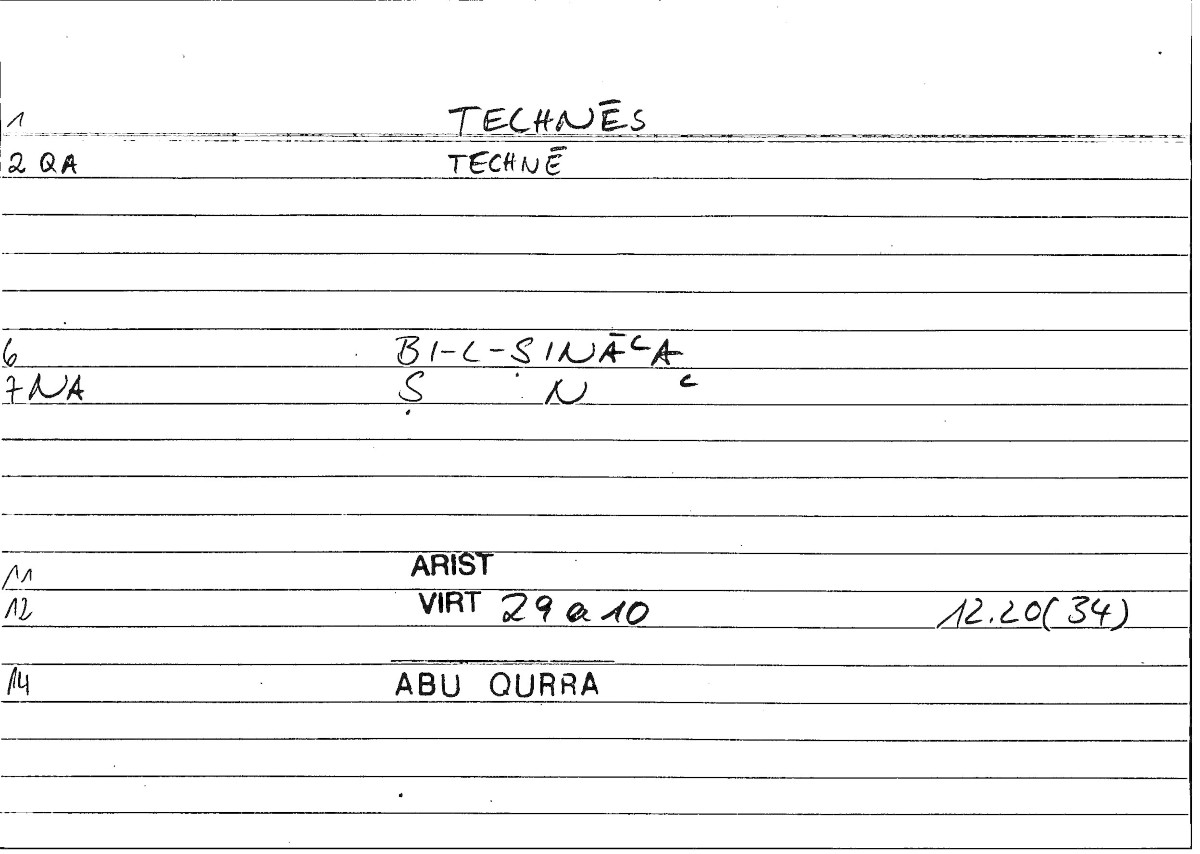 1 TECHNĒS
2 QA TECHNĒ
6 BI-L-SINĀʿA
7 NA Ṣ N ʿ
11 ARIST
12 VIRT 29 a 10 12.20(34)
14 ABU QURRA